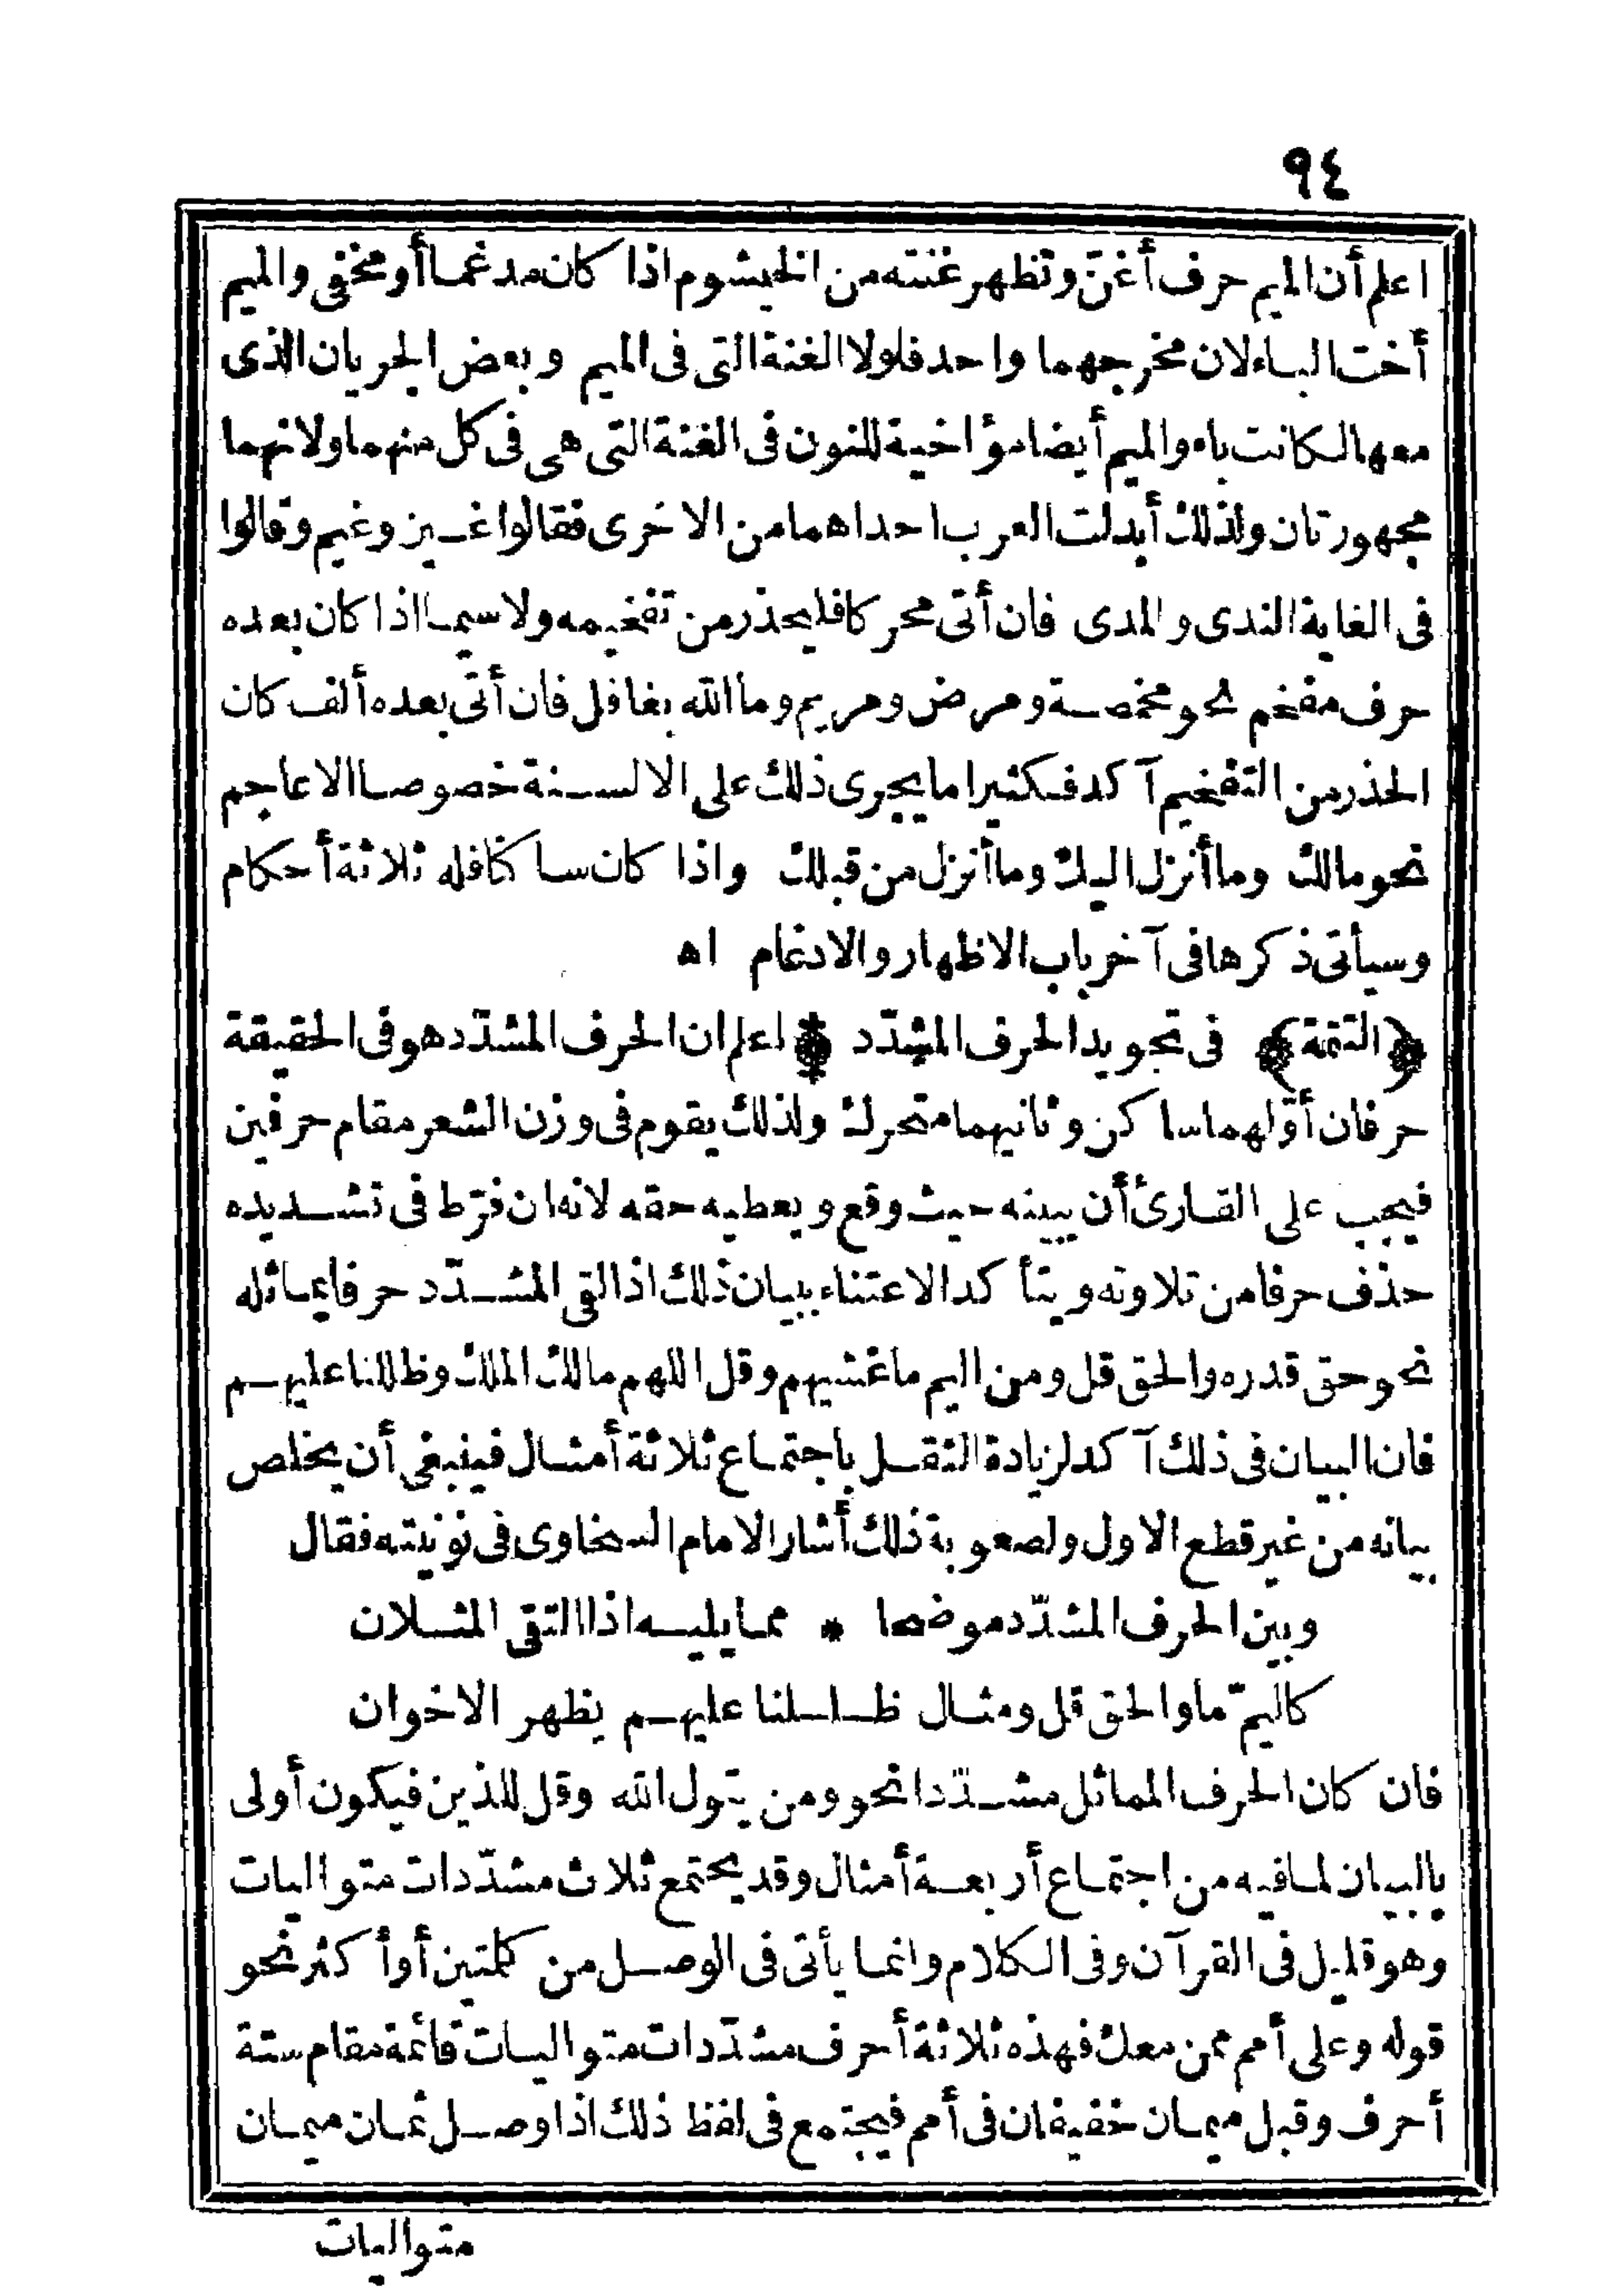 ٩٤
اعلم أن الميم حرف أغنّ وتظهر غنته من الخيشوم اذا كان مدغما أو مخفى والميم
أخت الباء لان مخرجهما واحد فلولا الغنة التى فى الميم وبعض الجريان الذى
معها لكانت باء والميم أيضا مؤاخية للنون فى الغنة التى هى فى كل منهما ولانهما
مجهورتان ولذلك أبدلت العرب احداهما من الاخرى فقالوا غين وغيم وقالوا
فى الغاية الندى والمدى فان أتى محركا فليحذر من تفخيمه ولا سيما اذا كان بعده
حرف مفخم نحو مخمصة ومرض ومريم وما الله بغافل فان أتى بعده ألف كان
الحذر من التفخيم آكد فكثيرا ما يجرى ذلك على الالسنة خصوصا الاعاجم
نحو مالك وما أنزل اليك وما أنزل من قبلك واذا كان ساكنا فله ثلاثة أحكام
وسيأتى ذكرها فى آخر باب الاظهار والادغام اه
﴿التتمة﴾ فى تجويد الحرف المشدّد * اعلم ان الحرف المشدّد هو فى الحقيقة
حرفان أوّلهما ساكن وثانيهما متحرك ولذلك يقوم فى وزن الشعر مقام حرفين
فيجب على القارئ أن يبينه حيث وقع ويعطيه حقه لانه ان فرّط فى تشديده
حذف حرفا من تلاوته ويتأكد الاعتناء ببيان ذلك اذا لقى المشدّد حرفا يماثله
نحو حق قدره والحق قل ومن اليم ما غشيهم وقل اللهم مالك الملك وظللنا عليهم
فان البيان فى ذلك آكد لزيادة الثقل باجتماع ثلاثة أمثال فينبغى أن يخلص
بيانه من غير قطع الاول ولصعوبة ذلك أشار الامام السخاوى فى نونيته فقال
وبين الحرف المشدّد موضحا * مما يليه اذا التقى المثلان
كاليمّ ما والحق قل ومثال ظللنا عليهم يظهر الاخوان
فان كان الحرف المماثل مشدّدا نحو ومن يتول الله وقل للذين فيكون أولى
بالبيان لما فيه من اجتماع أربعة أمثال وقد يجتمع ثلاث مشدّدات متواليات
وهو قليل فى القرآن وفى الكلام وانما يأتى فى الوصل من كلمتين أو أكثر نحو
قوله وعلى أمم ممن معك فهذه ثلاثة أحرف مشدّدات متواليات قائمة مقام ستة
أحرف وقبل ميمان خفيفان فى أمم فيجتمع فى لفظ ذلك اذا وصل ثمان ميمان
متواليات